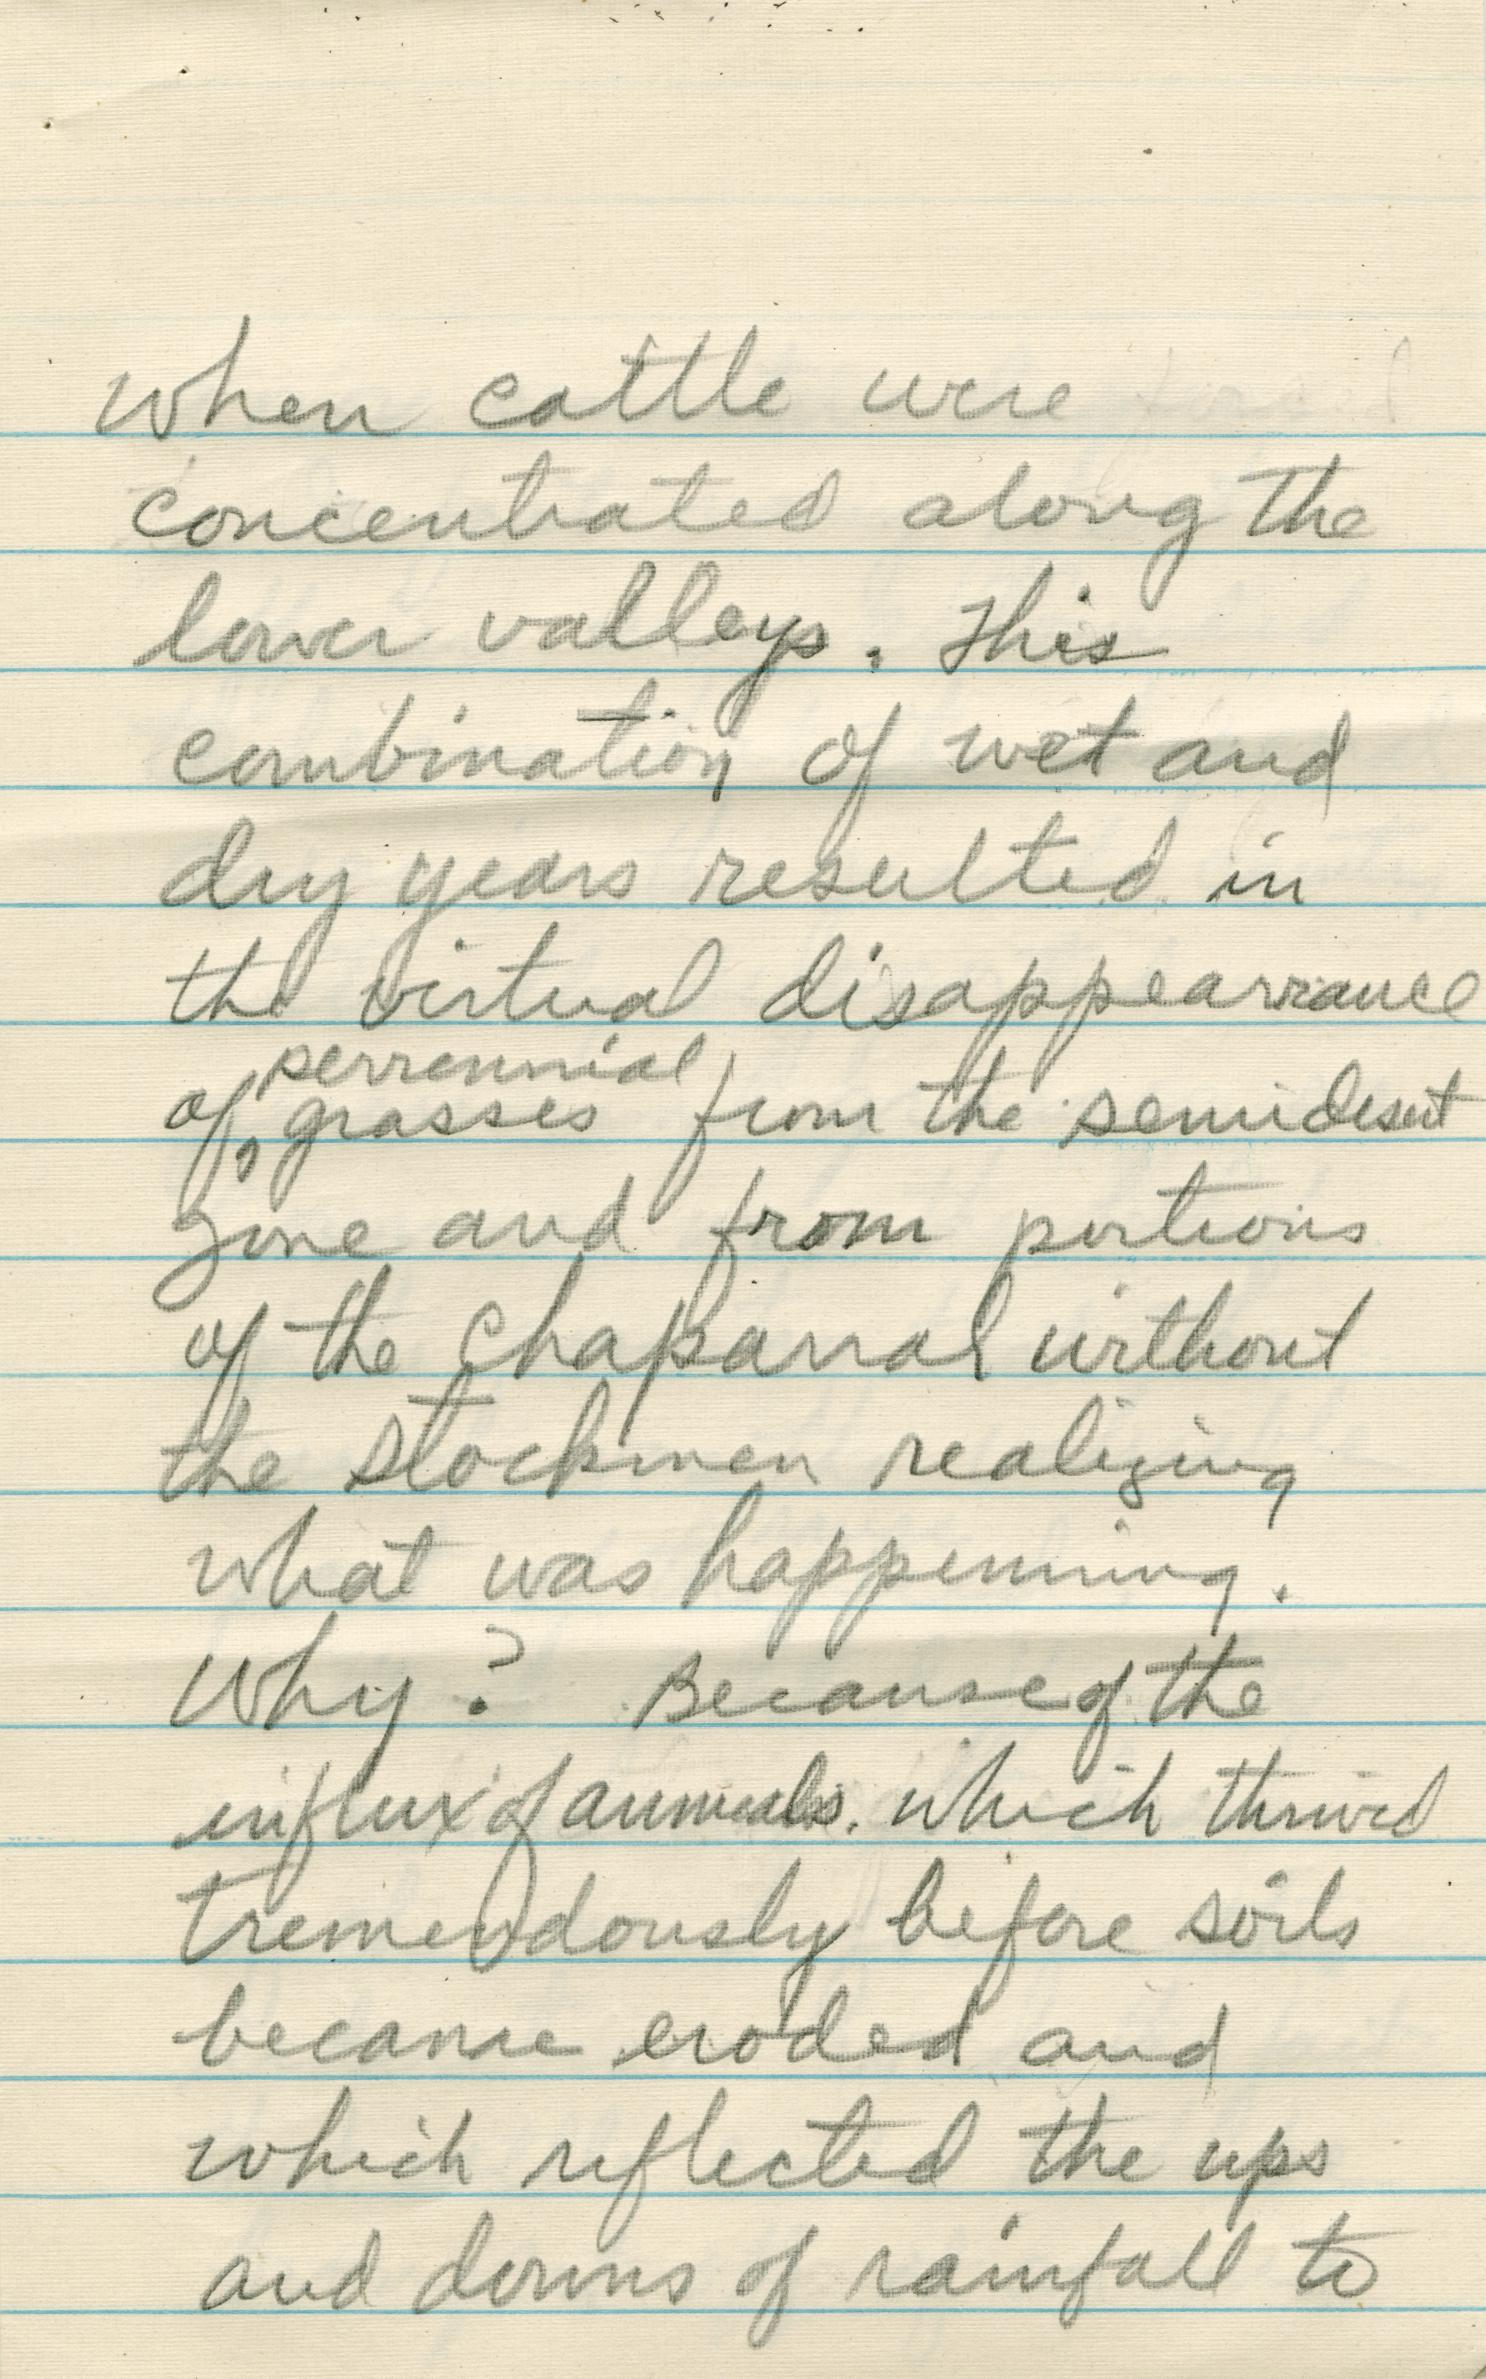 when cattle were
concentrated along the
lower valleys. This
combination of wet and
dry years resulted in
the virtual disappearrance
perrennial
of, grasses from the semidesert
zone and from portions
of the Chaparral without
the stockmen realizing
what was happenning.
Why? Because of the
influx of annuals. which thrived
tremendously before soils
became eroded and
which reflected the ups
and downs of rainfall to